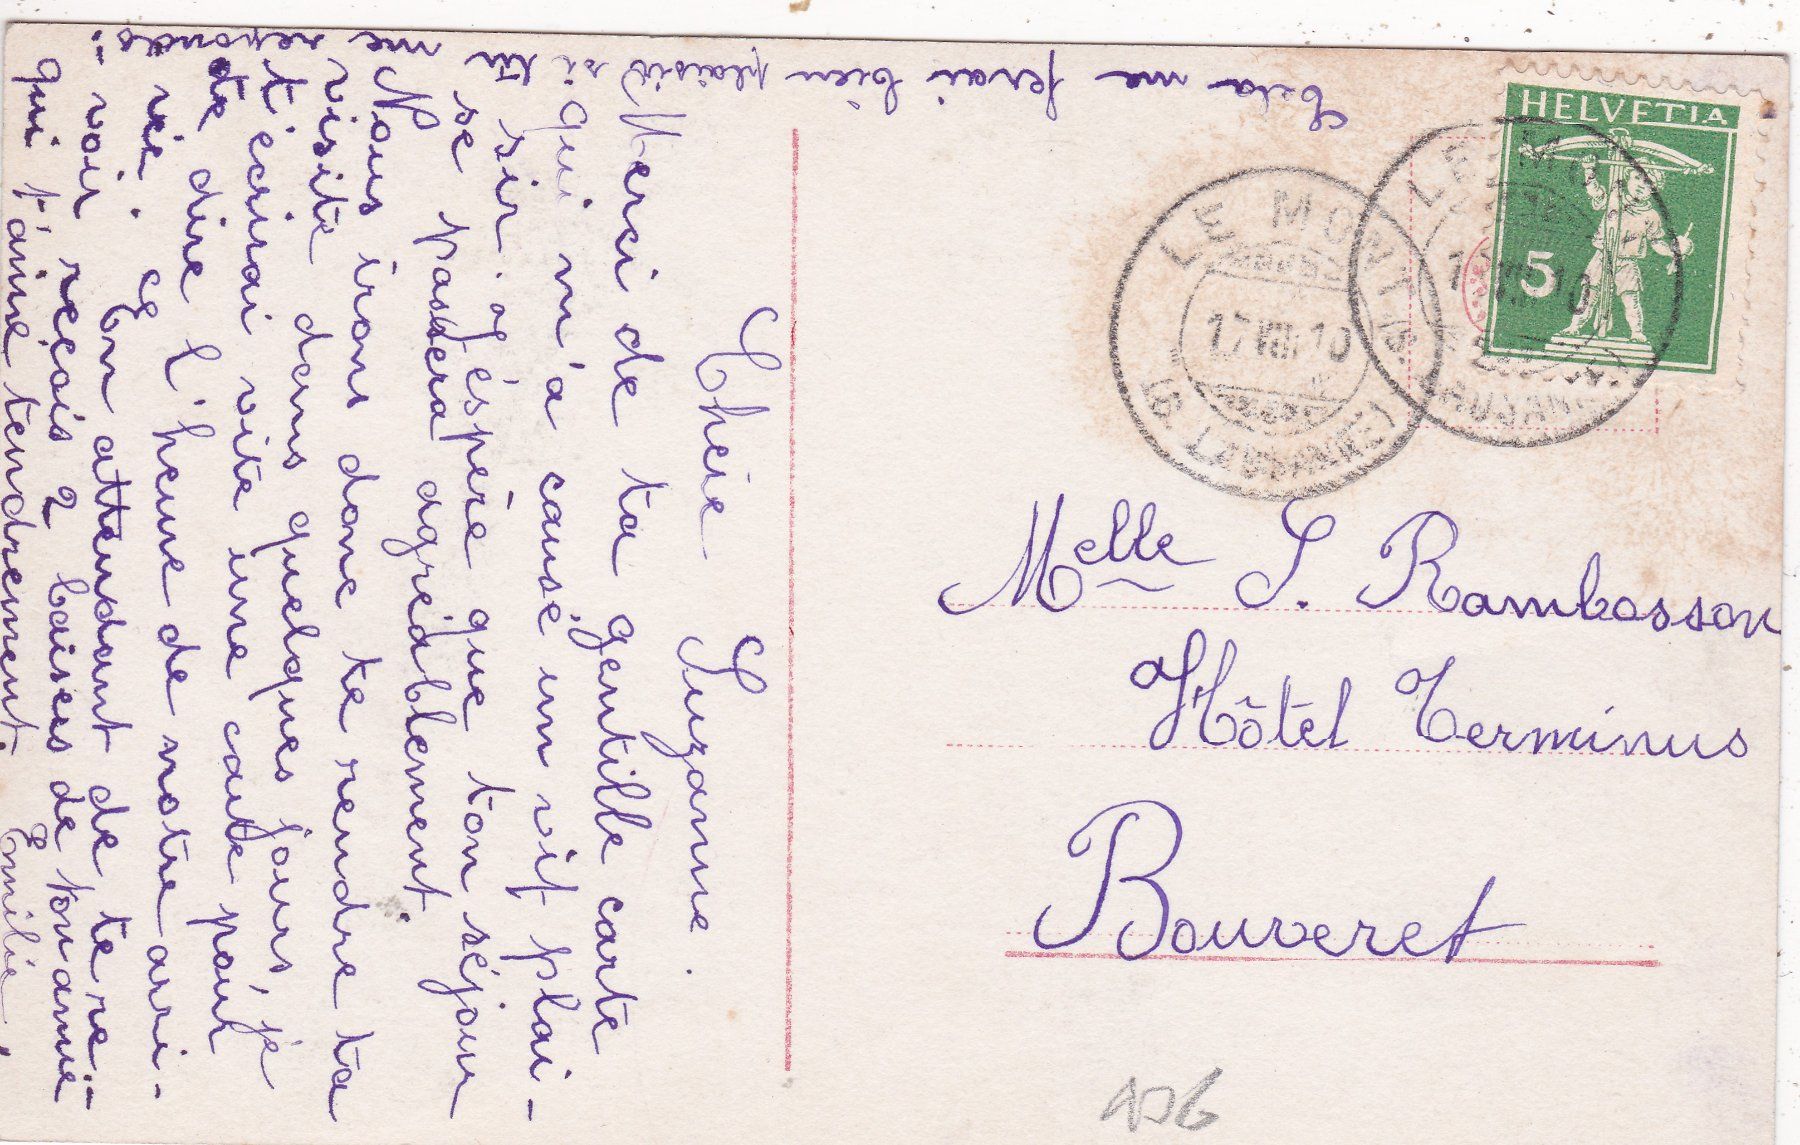 Chère Suzanne.
Merci de ta gentille carte
qui m'a causé un vif plai-
sir. J'éspère que ton séjour
se passera agréablement.
Nous irons donc te rendre ta
visite dans quelques jours, je
t'écrirai vite une carte pour
te dire l'heure de notre arri-
vée. En attendant de te re-
voir reçois 2 baisers de ton amie
qui t'aime tendrement.
Emilie.
Cela me ferai bien plaisir si tu me reponds.
HELVETIA
5
LE MONT
17 VIII 10
(S. LAUSANNE)
LE MONT
VIII 10
(S. LAUSANNE)
Melle S. Rambosson
Hôtel Terminus
Bouveret
106